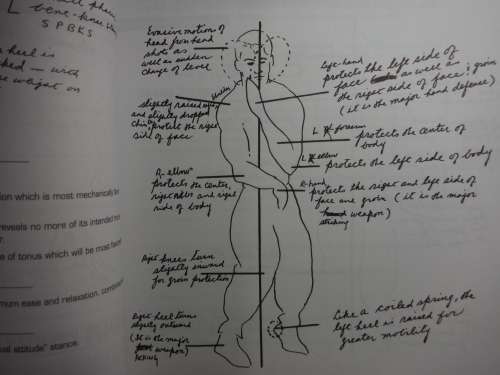 L bent-knee
SPBKS
heel is
on
tion which is most mechanically
reveals no more of its intended
e of tonus which will be most
mum ease and relaxation,
al attitude" stance.
Evasive motion of
head from head
shots as
well as sudden
change of level
slightly raised
and slightly dropped
chin, protect the right
side of face
R-elbow
protects the center,
right ribs and right
side of body
Right knees turn
slightly inward
for groin protection
Right heel turns
slightly outward
(It is the major
weapon)
kicking
Left-hand
protects the left side of
face as well as
the right side of face; groin
(it is the major hand defense)
L forearm
protects the center of
body
L elbow
protects the left side of body
R-hand
protects the right and left side of
face and groin (it is the major
weapon)
striking
Like a coiled spring, the
left heel is raised for
greater motility